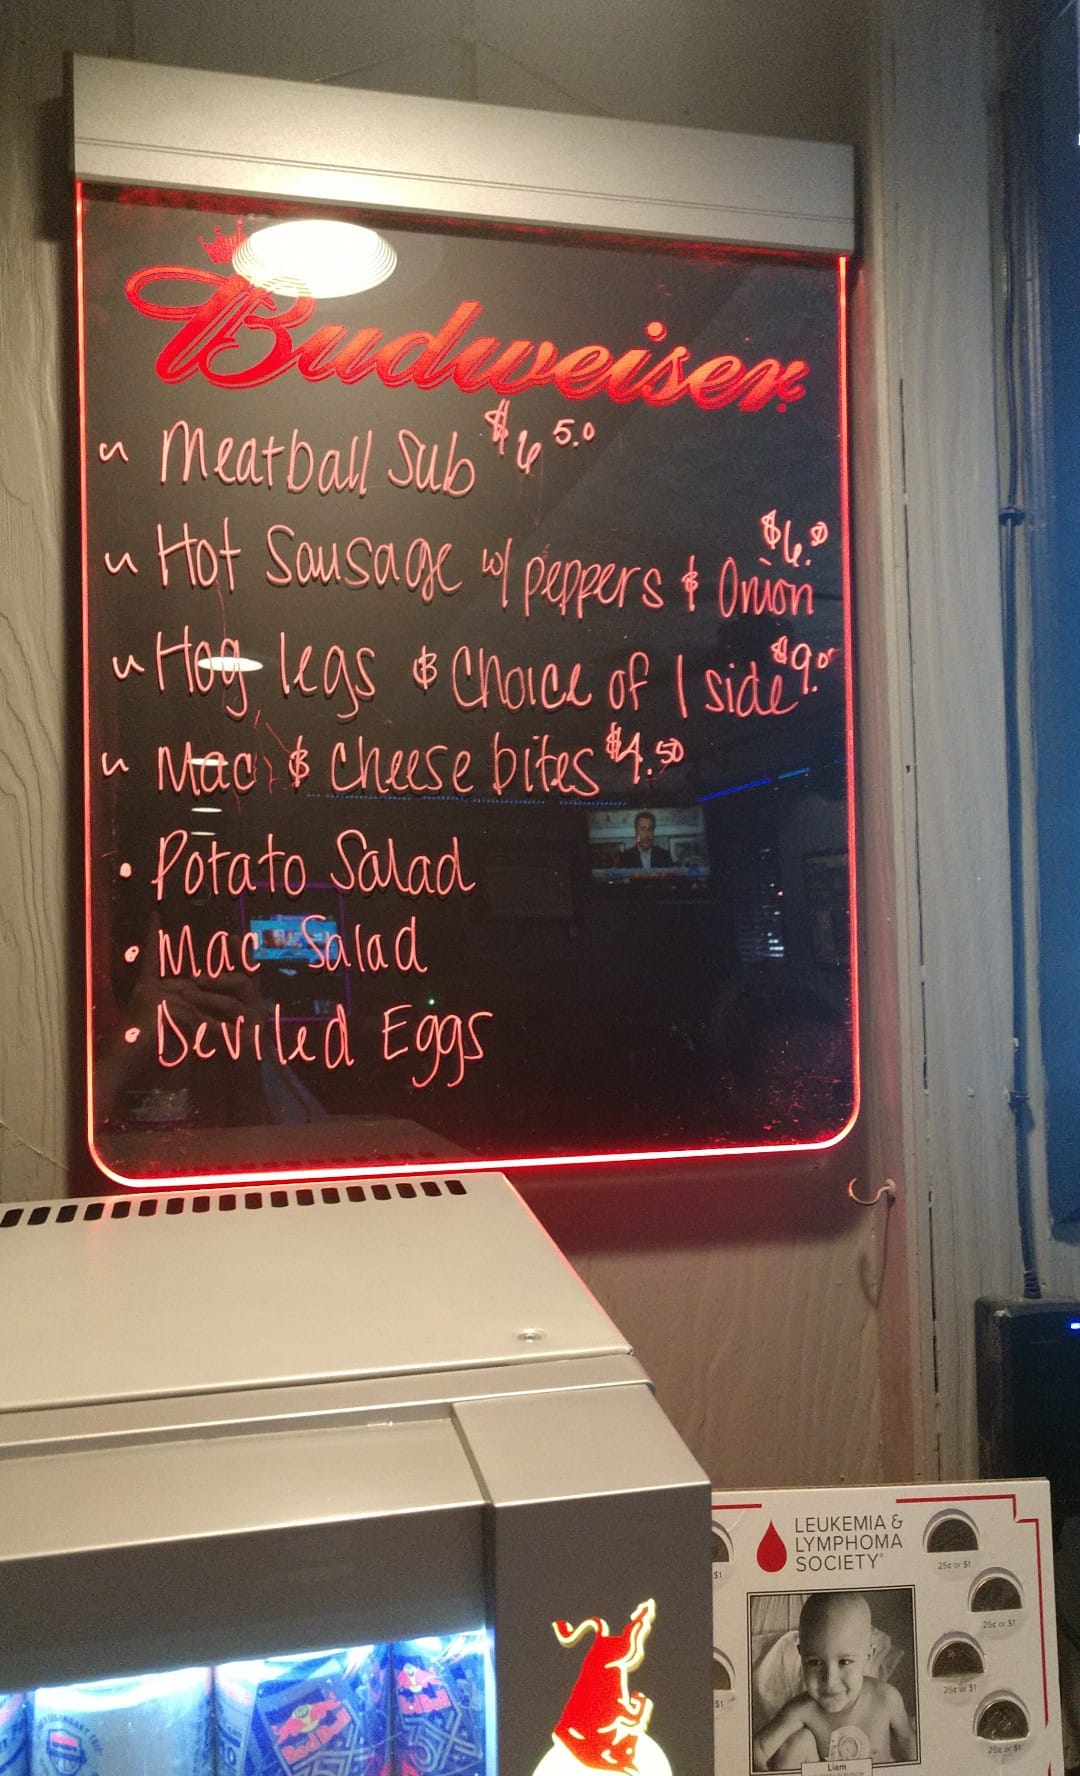 Budweiser
Meatball Sub $6 50
Hot Sausage w/ peppers & Onion $6.0
Hog legs & Choice of 1 side $9.0
Mac & Cheese bites $4.50
• Potato Salad
• Mac Salad
• Deviled Eggs
LEUKEMIA &
LYMPHOMA
SOCIETY®
25¢ or $1
25¢ or $1
25¢ or $1
25¢ or $1
$1
$1
Liam
Red Bull